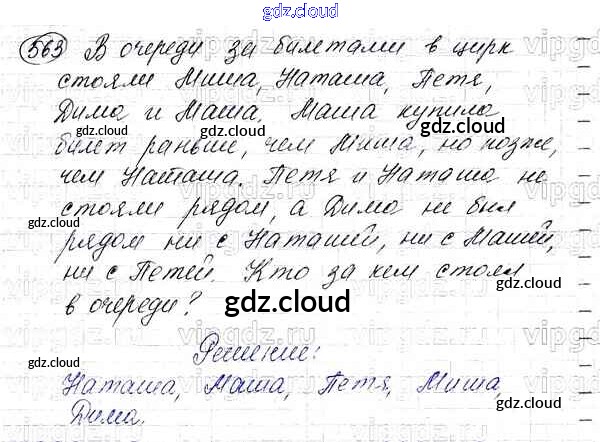 gdz.cloud
563 В очереди за билетами в цирк
стояли Миша, Наташа, Петя,
Дима и Маша. Маша купила
gdz.cloud gdz.cloud
билет раньше, чем Миша, но позже,
чем Наташа. Петя и Наташа не
gdz.cloud gdz.cloud
стояли рядом, а Дима не был
рядом ни с Наташей, ни с Машей,
ни с Петей. Кто за кем стоял
в очереди?
gdz.cloud
gdz.cloud
Решение:
gdz.cloud gdz.cloud
Наташа, Маша, Петя, Миша,
Дима.